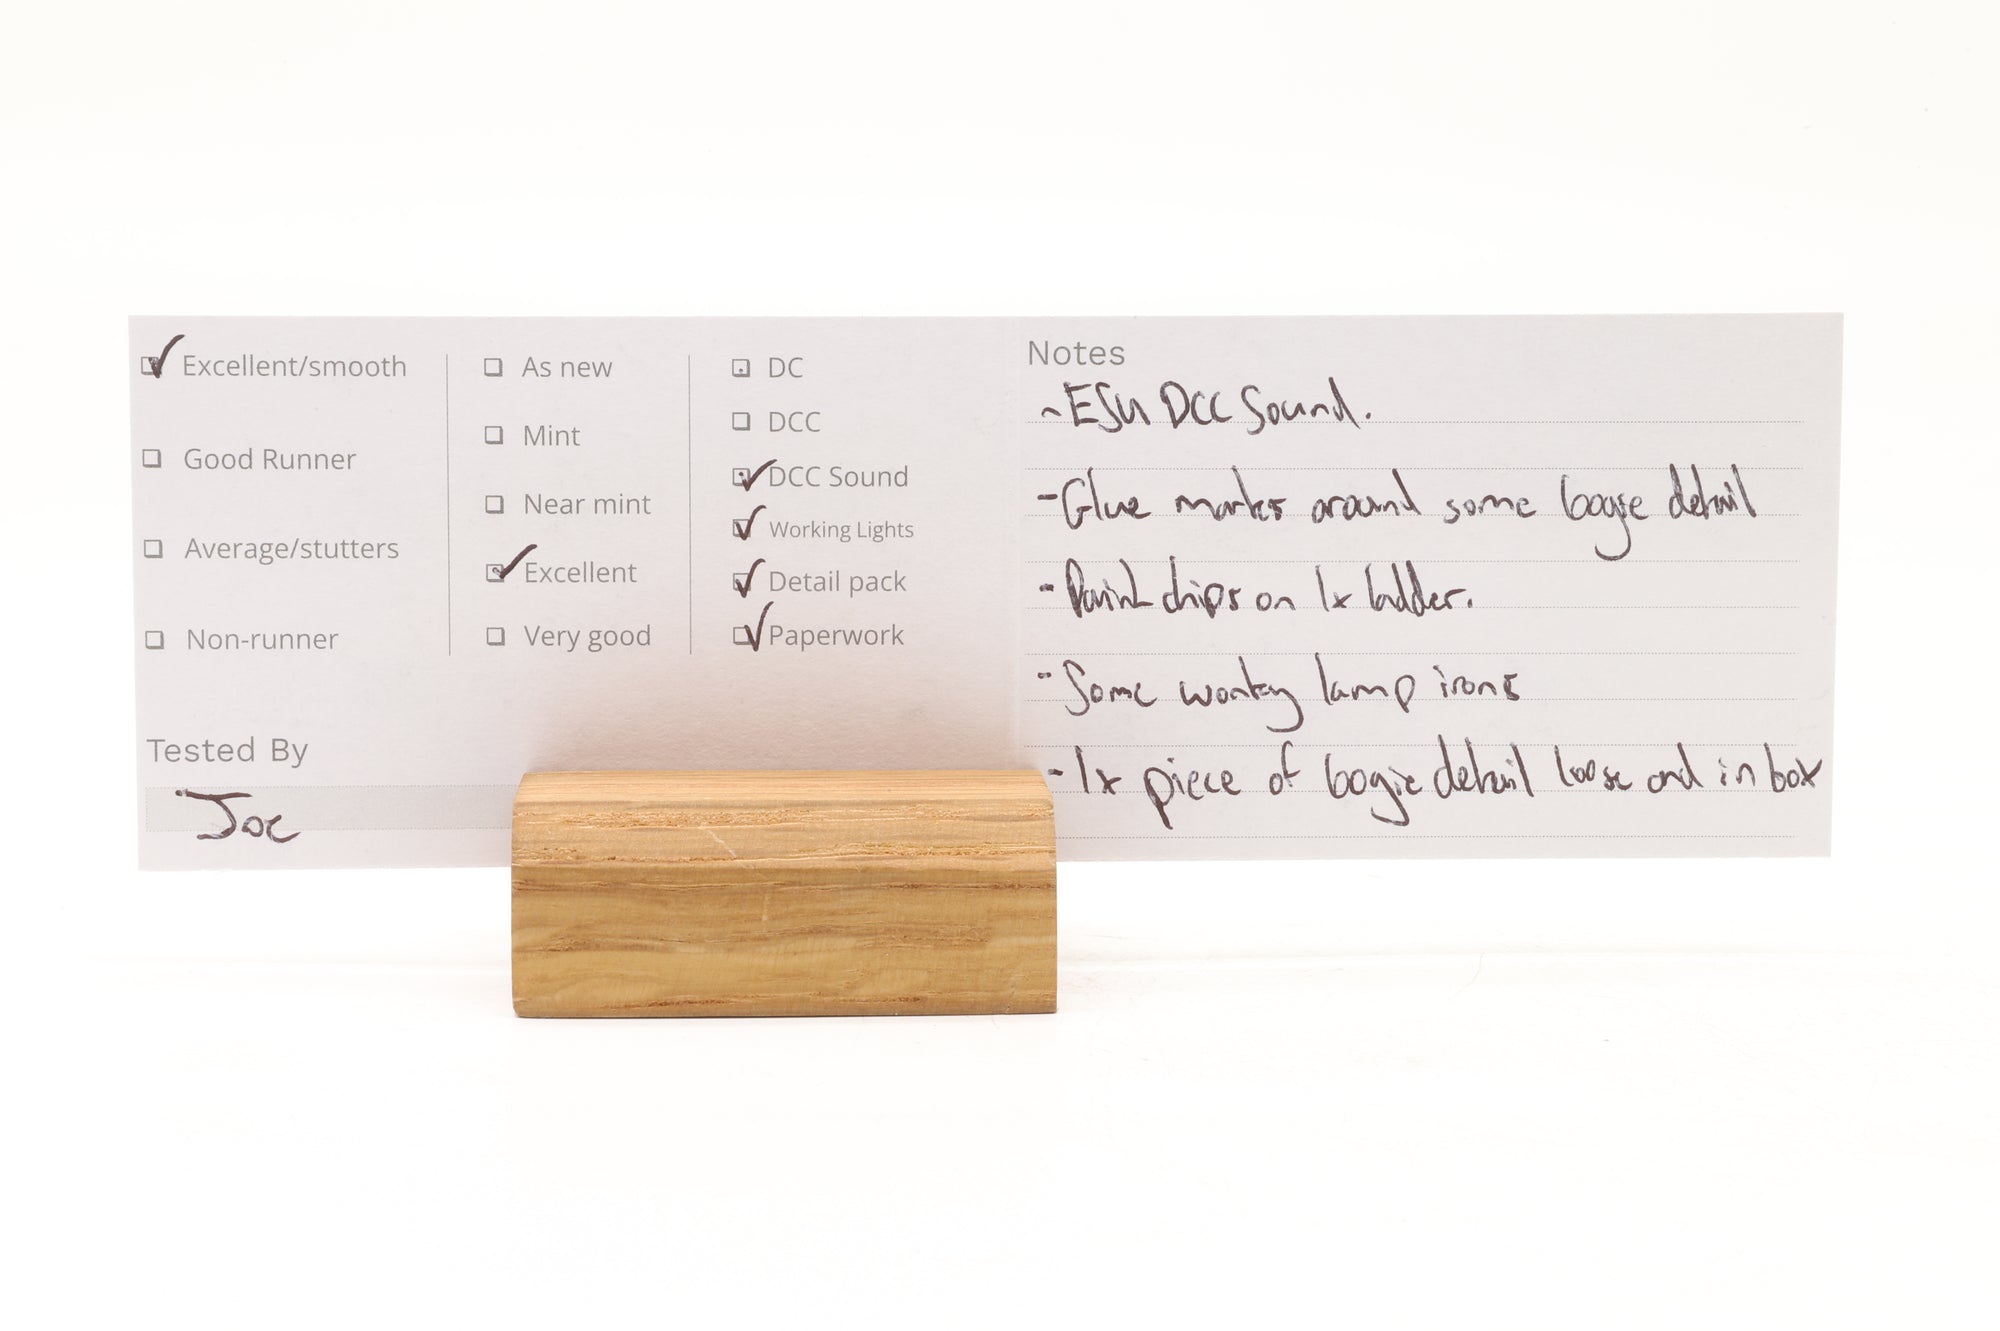 Excellent/smooth
Good Runner
Average/stutters
Non-runner
As new
Mint
Near mint
Excellent
Very good
DC
DCC
DCC Sound
Working Lights
Detail pack
Paperwork
Tested By
Joe
Notes
- ESU DCC Sound.
- Glue marks around some bogie detail
- Paint chips on 1x ladder.
- Some wonky lamp irons
- 1x piece of bogie detail loose and in box